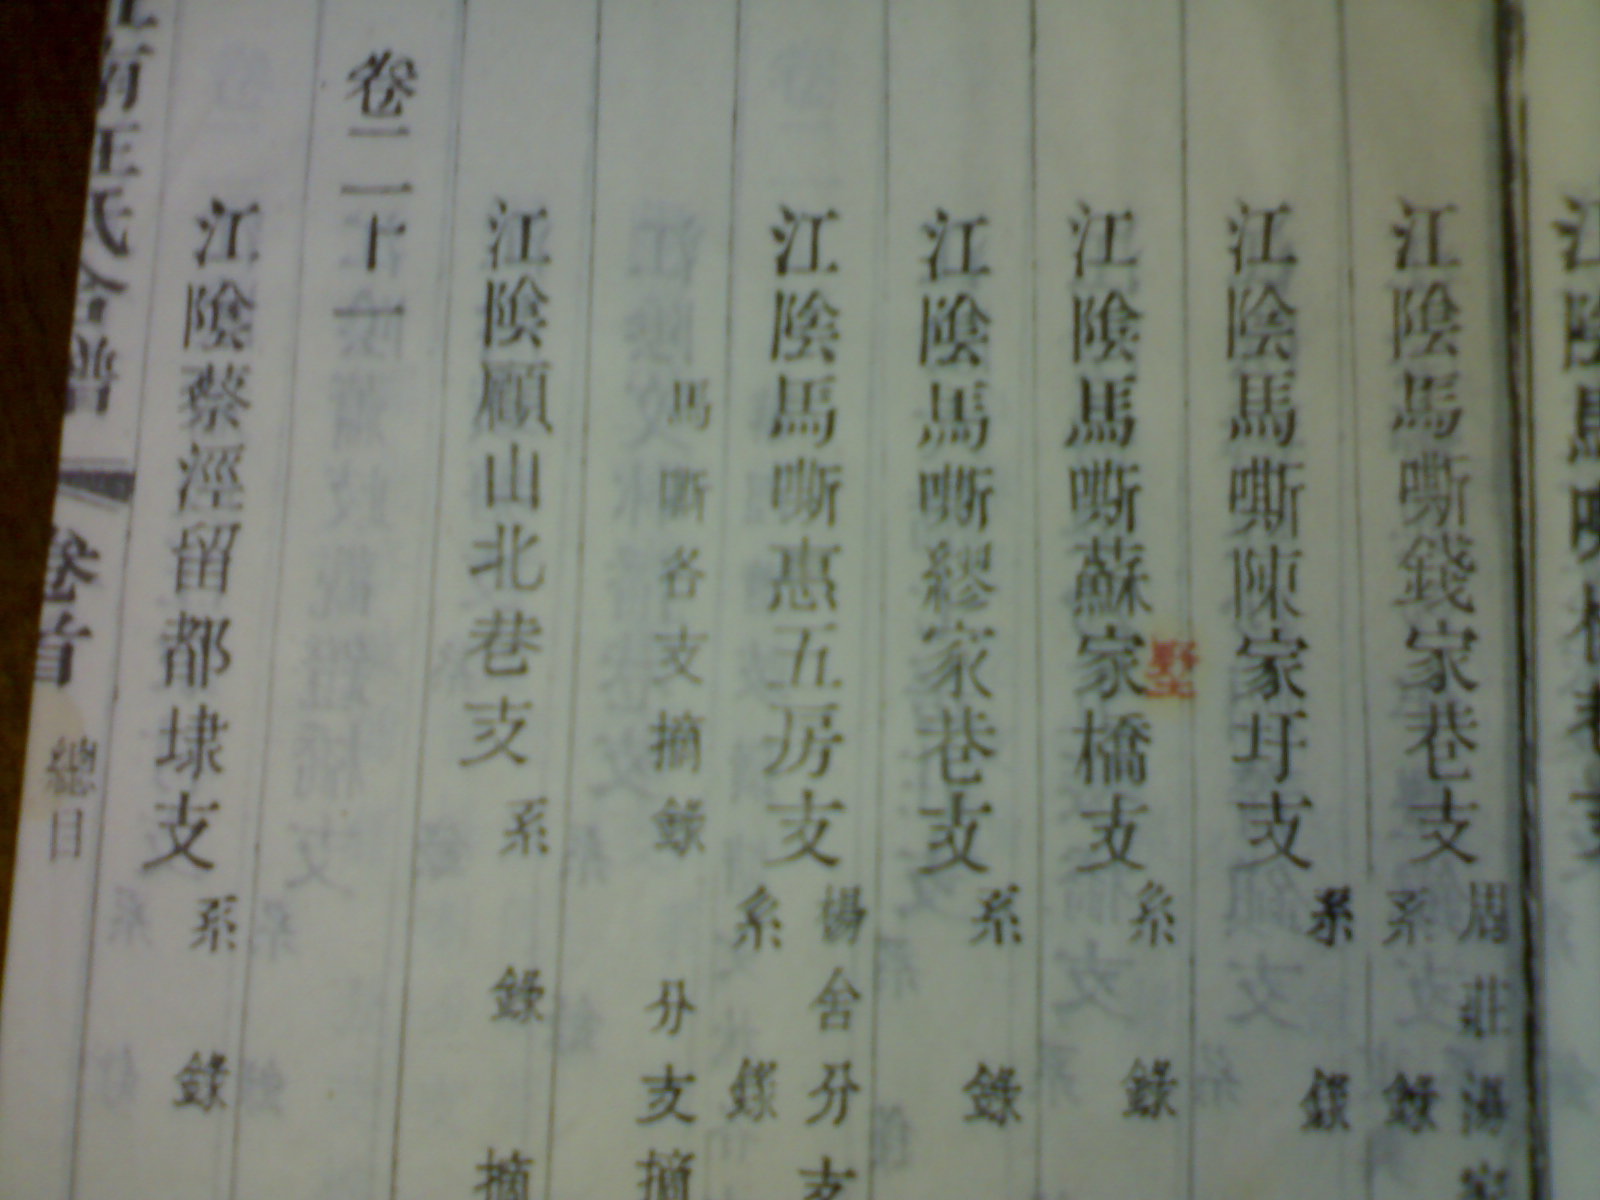 江陰馬嘶錢家巷支 系錄
周莊湯家
江陰馬嘶陳家圩支 系錄
江陰馬嘶蘇家橋支 系錄
墅
江陰馬嘶繆家巷支 系錄
江陰馬嘶惠五房支 系錄
楊舍分支
馬嘶各支摘錄 分支摘
江陰顧山北巷支 系錄摘
卷二十一
江陰蔡涇留都埭支 系錄
江南王氏合譜 卷首 總目